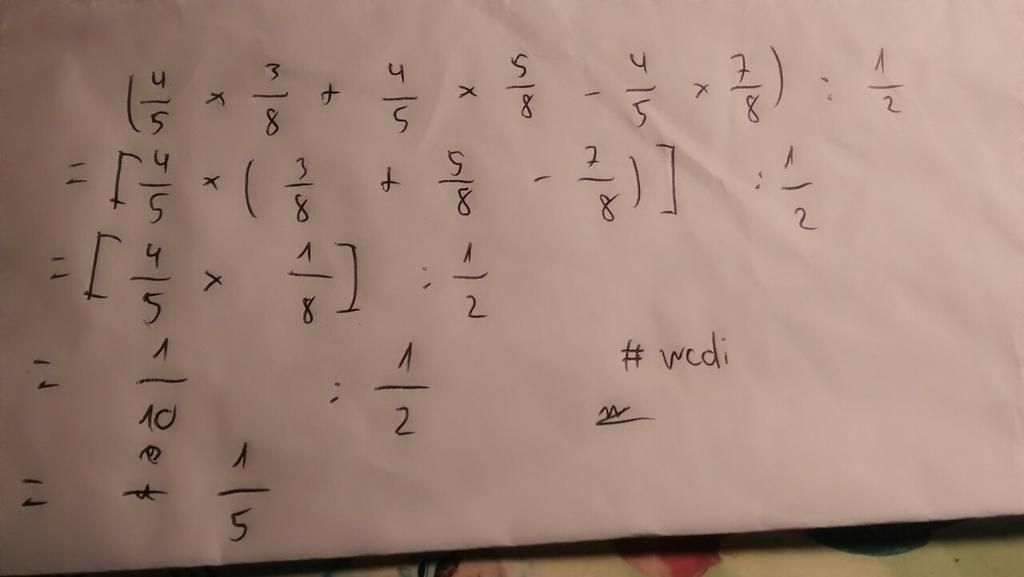 (4/5 × 3/8 + 4/5 × 5/8 - 4/5 × 7/8) : 1/2
= [4/5 × (3/8 + 5/8 - 7/8)] : 1/2
= [4/5 × 1/8] : 1/2
= 1/10 : 1/2
# wcdi
= 1/5